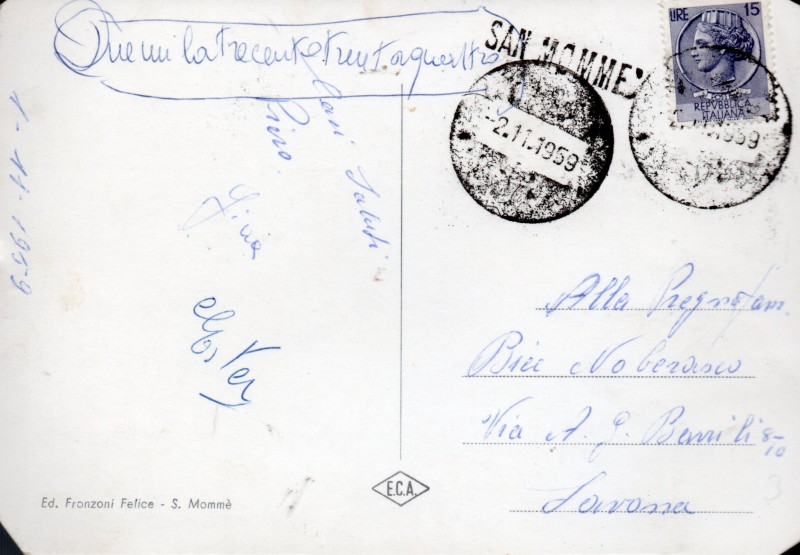 Duemilatrecentotrentaquattro
Cari Saluti
Piero
Gina
1-11-1959
SAN MOMME'
-2.11.1959
LIRE 15
REPVBBLICA
ITALIANA
Alla Pregma fam.
Bice Noberasco
Via A. G. Barrili 8-10
Savona
3
Ed. Franzoni Felice - S. Mommè
E.C.A.